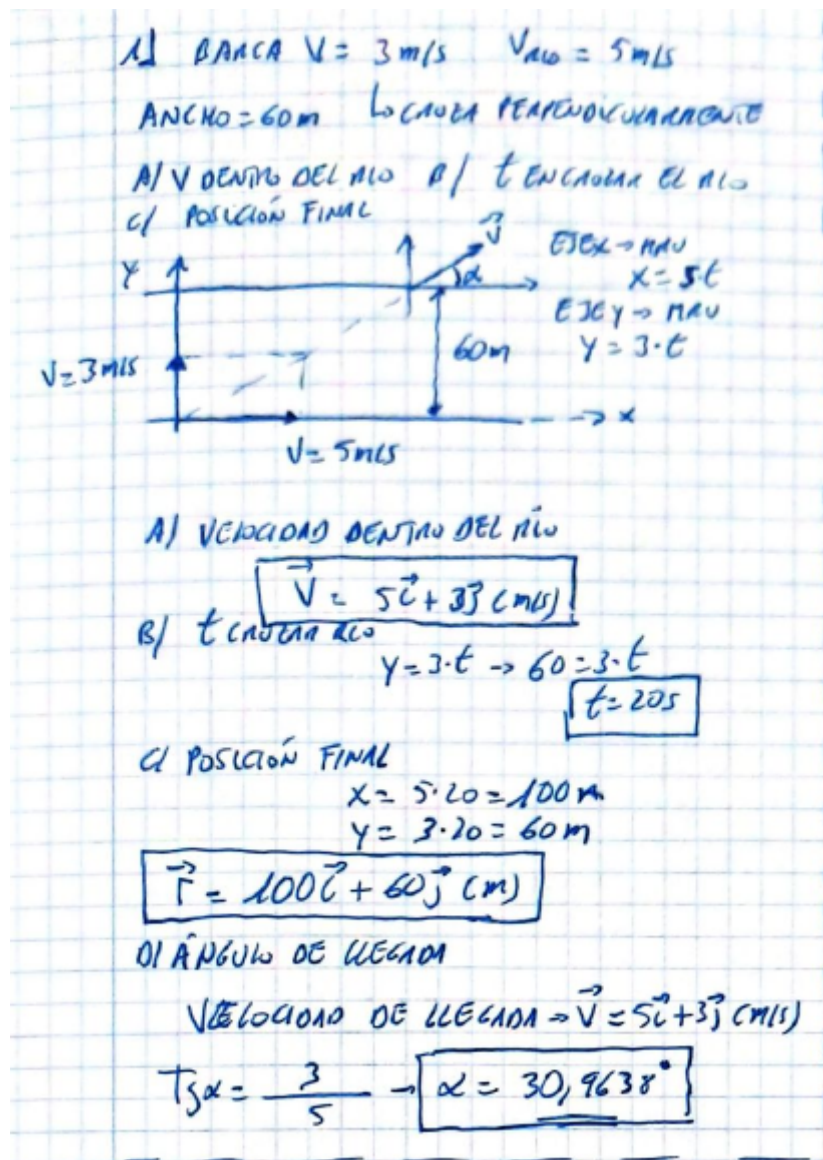 1) BARCA V = 3 m/s V RÍO = 5 m/s
ANCHO = 60 m LO CRUZA PERPENDICULARMENTE
A/ V DENTRO DEL RIO B/ t EN CRUZAR EL RIO
C/ POSICIÓN FINAL
Y V α EJE X → MRU
X = 5·t
EJE Y → MRU
60 m Y = 3·t
V = 3 m/s
X
V = 5 m/s
A) VELOCIDAD DENTRO DEL RÍO
V = 5i + 3j (m/s)
B/ t CRUZAR RIO
Y = 3·t → 60 = 3·t
t = 20 s
C/ POSICIÓN FINAL
X = 5·20 = 100 m
Y = 3·20 = 60 m
r = 100i + 60j (m)
D) ÁNGULO DE LLEGADA
VELOCIDAD DE LLEGADA → V = 5i + 3j (m/s)
Tg α = 3/5 → α = 30,9638°